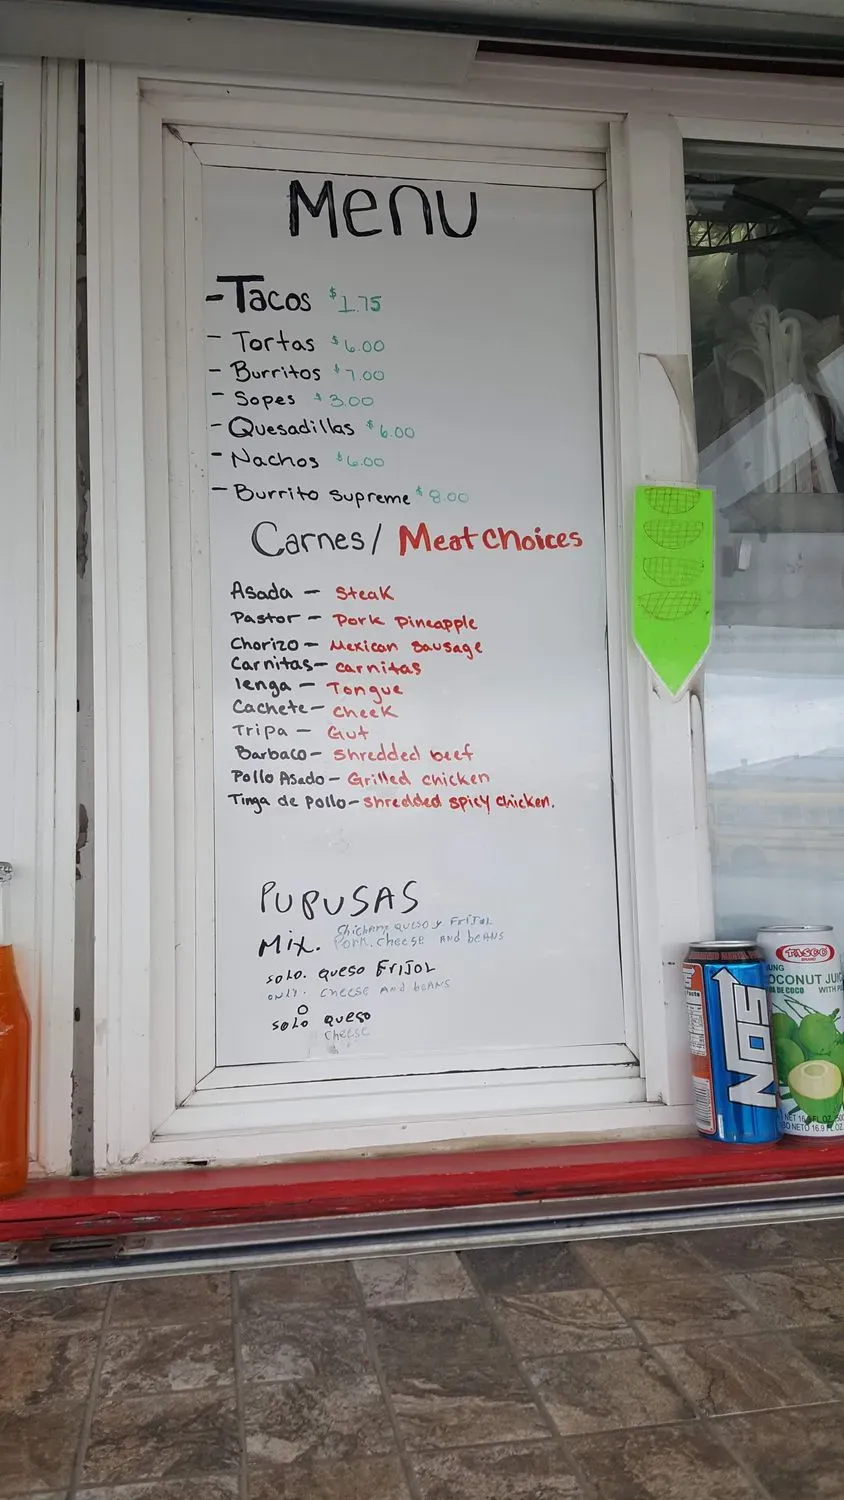 Menu
- Tacos $1.75
- Tortas $6.00
- Burritos $7.00
- Sopes $3.00
- Quesadillas $6.00
- Nachos $6.00
- Burrito Supreme $8.00
Carnes / Meat choices
Asada - Steak
Pastor - Pork Pineapple
Chorizo - Mexican Sausage
Carnitas - carnitas
lenga - Tongue
Cachete - cheek
Tripa - Gut
Barbaco - Shredded beef
Pollo Asado - Grilled chicken
Tinga de Pollo - shredded spicy chicken.
PUPUSAS
queso y FriJoL
Mix. Pork. cheese AND beANS
soLo. queso FriJoL
ONLY. cheese AND beANS
O
soLo queso
cheese
NOS
TASCO
BRAND
COCONUT JUIC
A DE COCO WITH P